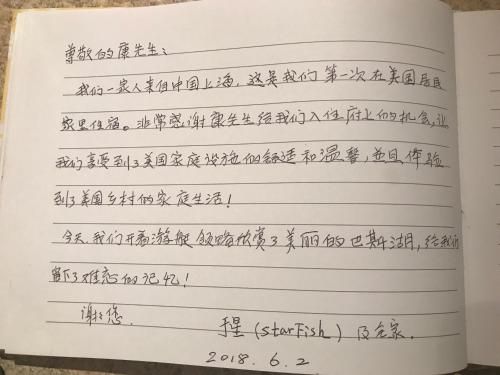 尊敬的康先生：
我们一家人来自中国上海，这是我们第一次在美国居民
家里住宿。非常感谢康先生给我们入住府上的机会，让
我们享受到了美国家庭设施的舒适和温馨，并且体验
到了美国乡村的家庭生活！
今天，我们开着游艇领略欣赏了美丽的巴斯湖，给我们
留下了难忘的记忆！
谢谢您.
星（starFish）及全家.
2018.6.2